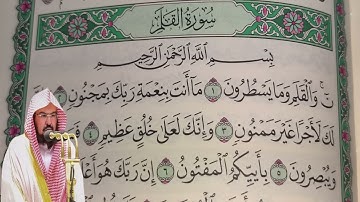 سُورَةُ القَلَمِ
بِسْمِ ٱللَّهِ ٱلرَّحْمَٰنِ ٱلرَّحِيمِ
نٓ ۚ وَٱلْقَلَمِ وَمَا يَسْطُرُونَ ١ مَآ أَنتَ بِنِعْمَةِ رَبِّكَ بِمَجْنُونٍ
لَكَ لَأَجْرًا غَيْرَ مَمْنُونٍ ٣ وَإِنَّكَ لَعَلَىٰ خُلُقٍ عَظِيمٍ ٤
وَيُبْصِرُونَ ٥ بِأَييِّكُمُ ٱلْمَفْتُونُ ٦ إِنَّ رَبَّكَ هُوَ